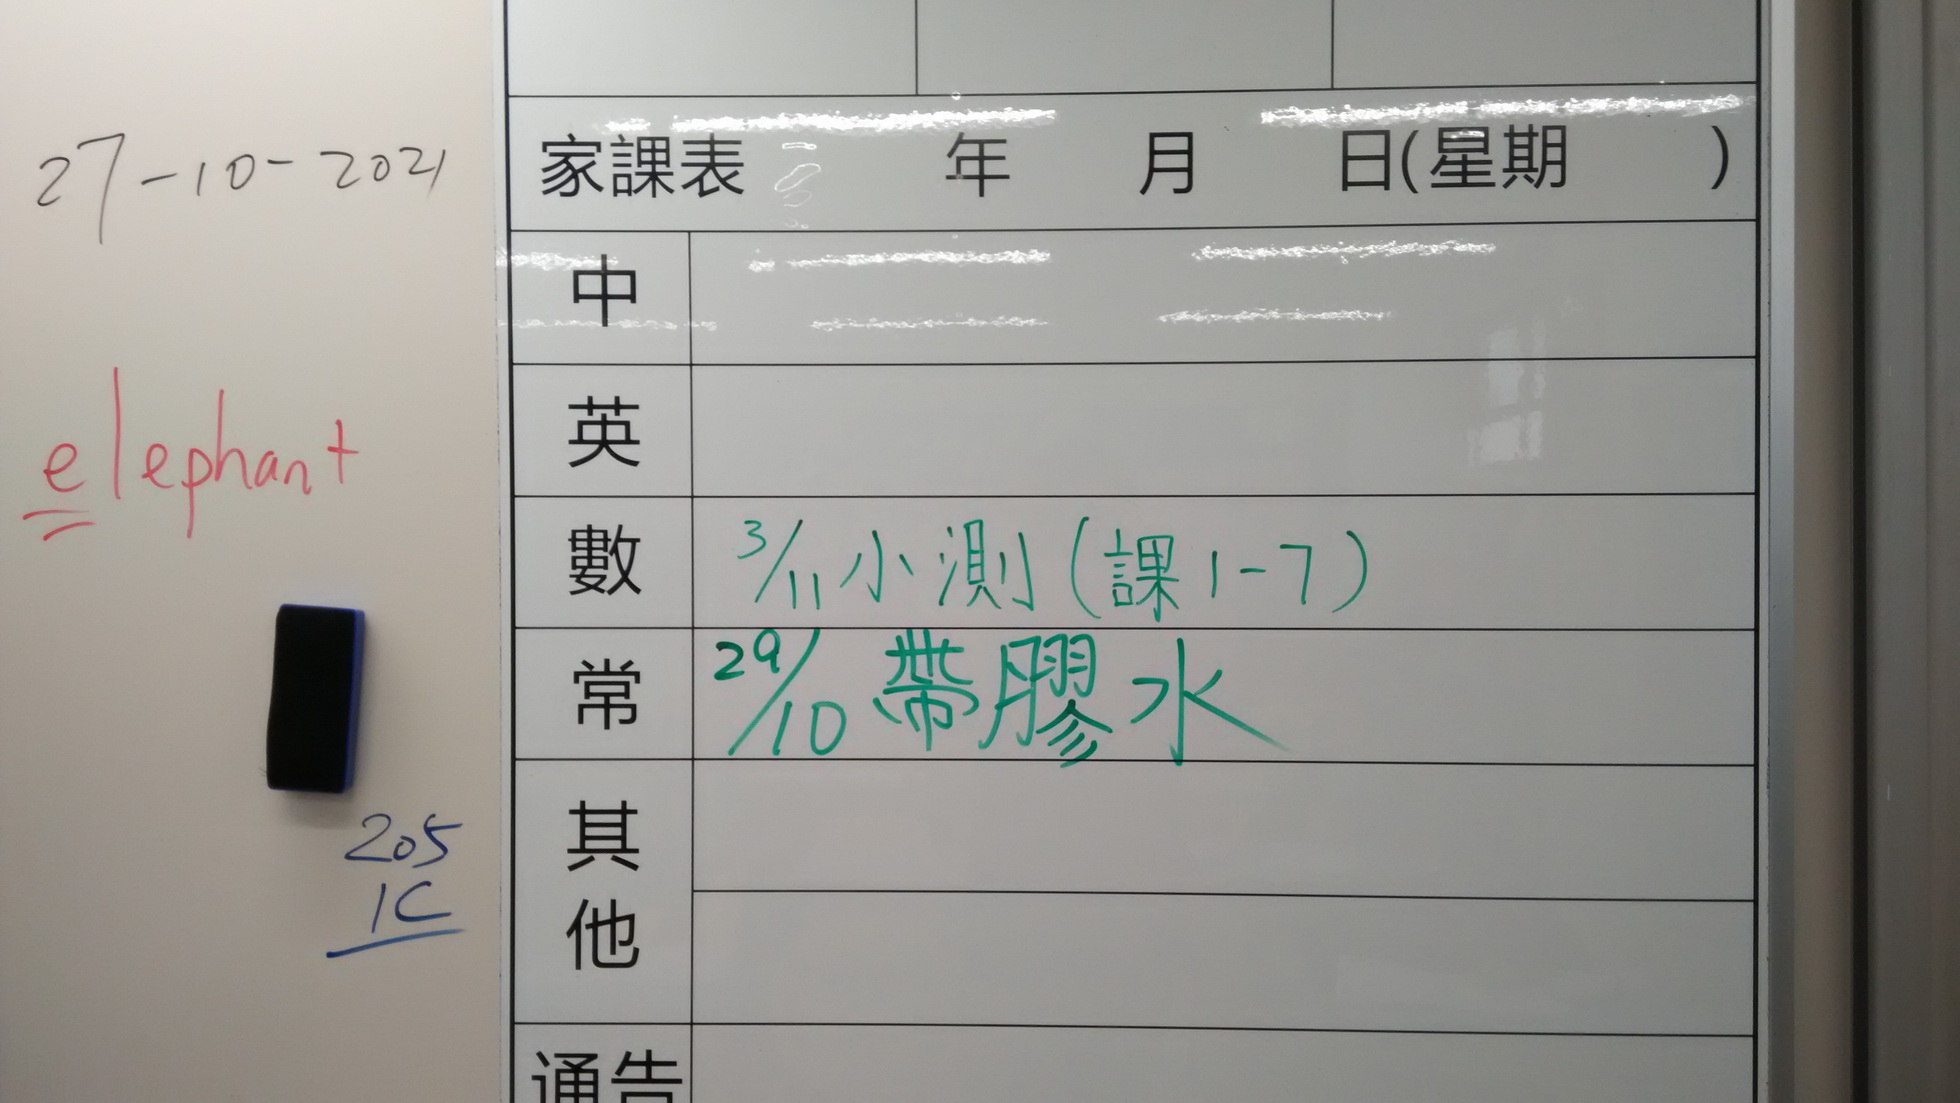 27-10-2021
elephant
205
1C
家課表 年 月 日(星期 )
中
英
數 3/11 小測(課1-7)
常 29/10 帶膠水
其他
通告